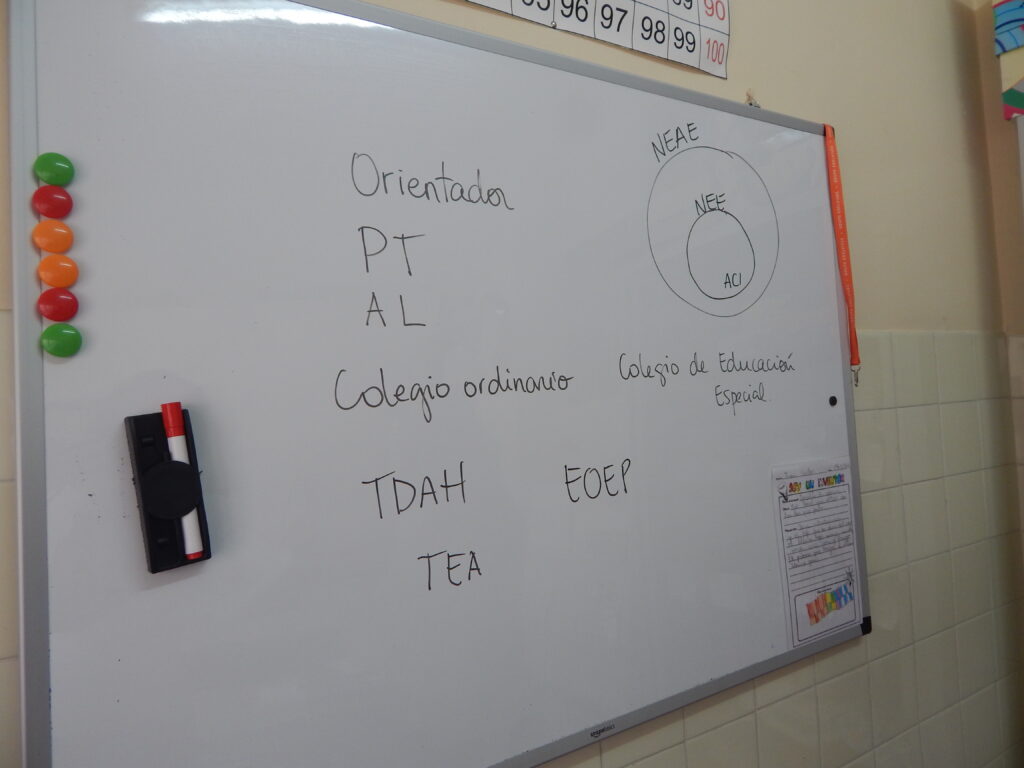 95 96 97 98 99 100
89 90
NEAE
Orientador
NEE
PT
ACI
AL
Colegio ordinario
Colegio de Educación
Especial.
TDAH
EOEP
TEA